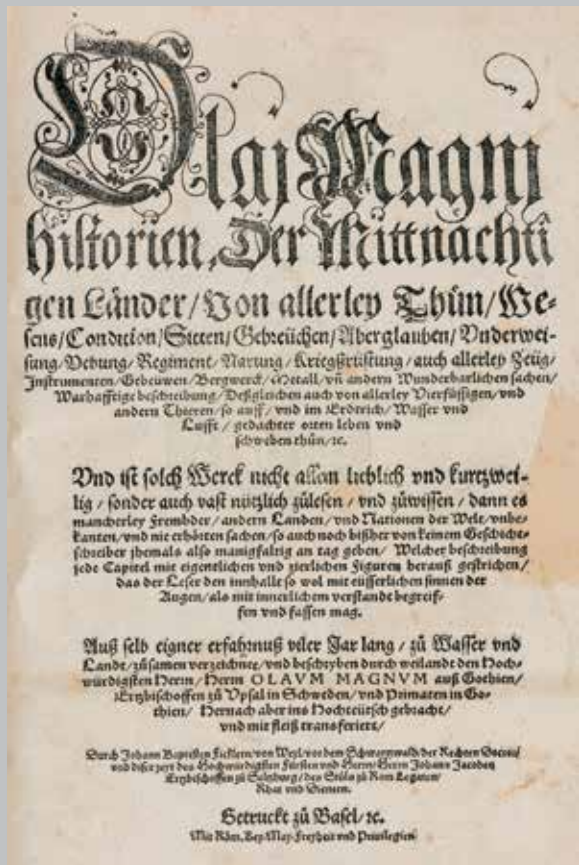 Olaj Magnj
Historien, Der Mittnächti
gen Länder/Von allerley Thůn/We-
sens/Condition/Sitten/Gebreüchen/Aberglauben/Vnderwei-
sung/Vebung/Regiment/Narung/Kriegßrüstung/auch allerley Zeüg/
Instrumenten/Gebeuwen/Bergwerck/Metall/vñ andern Wunderbarlichen sachen/
Warhafftige beschreibung/Deßgleichen auch von allerley Vierfüssigen/vnd
andern Thieren/so auff/vnd im Erdtrich/Wasser vnd
Lufft/gedachter orten leben vnd
schweben thůn/ꝛc.
Vnd ist solch Werck nicht allein lieblich vnd kurtzwei-
lig/sonder auch vast nützlich zůlesen/vnd zůwissen/dann es
mancherley Frembder/andern Landen/vnd Nationen der Welt/vnbe-
kanten/vnd nie erhörten sachen/so auch noch bißher von keinem Geschicht-
schreiber jhemals also manigfaltig an tag geben/Welcher beschreibung
jede Capitel mit eigentlichen vnd zierlichen Figuren herauß gestrichen/
das der Leser den innhallt so wol mit eüsserlichen sinnen der
Augen/als mit innerlichem verstande begreif-
fen vnd fassen mag.
Auß selb eigner erfahrnuß viler Jar lang/zů Wasser vnd
Lande/zůsamen verzeichnet/vnd beschryben durch weilandt den Hoch-
würdigsten Herrn/Herrn OLAVM MAGNVM auß Gothien/
Ertzbischoffen zů Vpsal in Schweden/vnd Primaten in Go-
thien/Hernach aber ins Hochteütsch gebracht/
vnd mit fleiß transferiert/
Durch Johann Baptisten Ficklern/von Weyl/vor dem Schwartzwald/der Rechten Doctor/
vnd diser zeyt des Hochwürdigsten Fürsten vnd Herrn/Herrn Johann Jacoben
Ertzbischoffen zů Saltzburg/des Stůls zů Rom Legaten/
Rhat vnd Dienern.
Getruckt zů Basel/ꝛc.
Mit Röm. Key. May. Freyheit vnd Privilegien